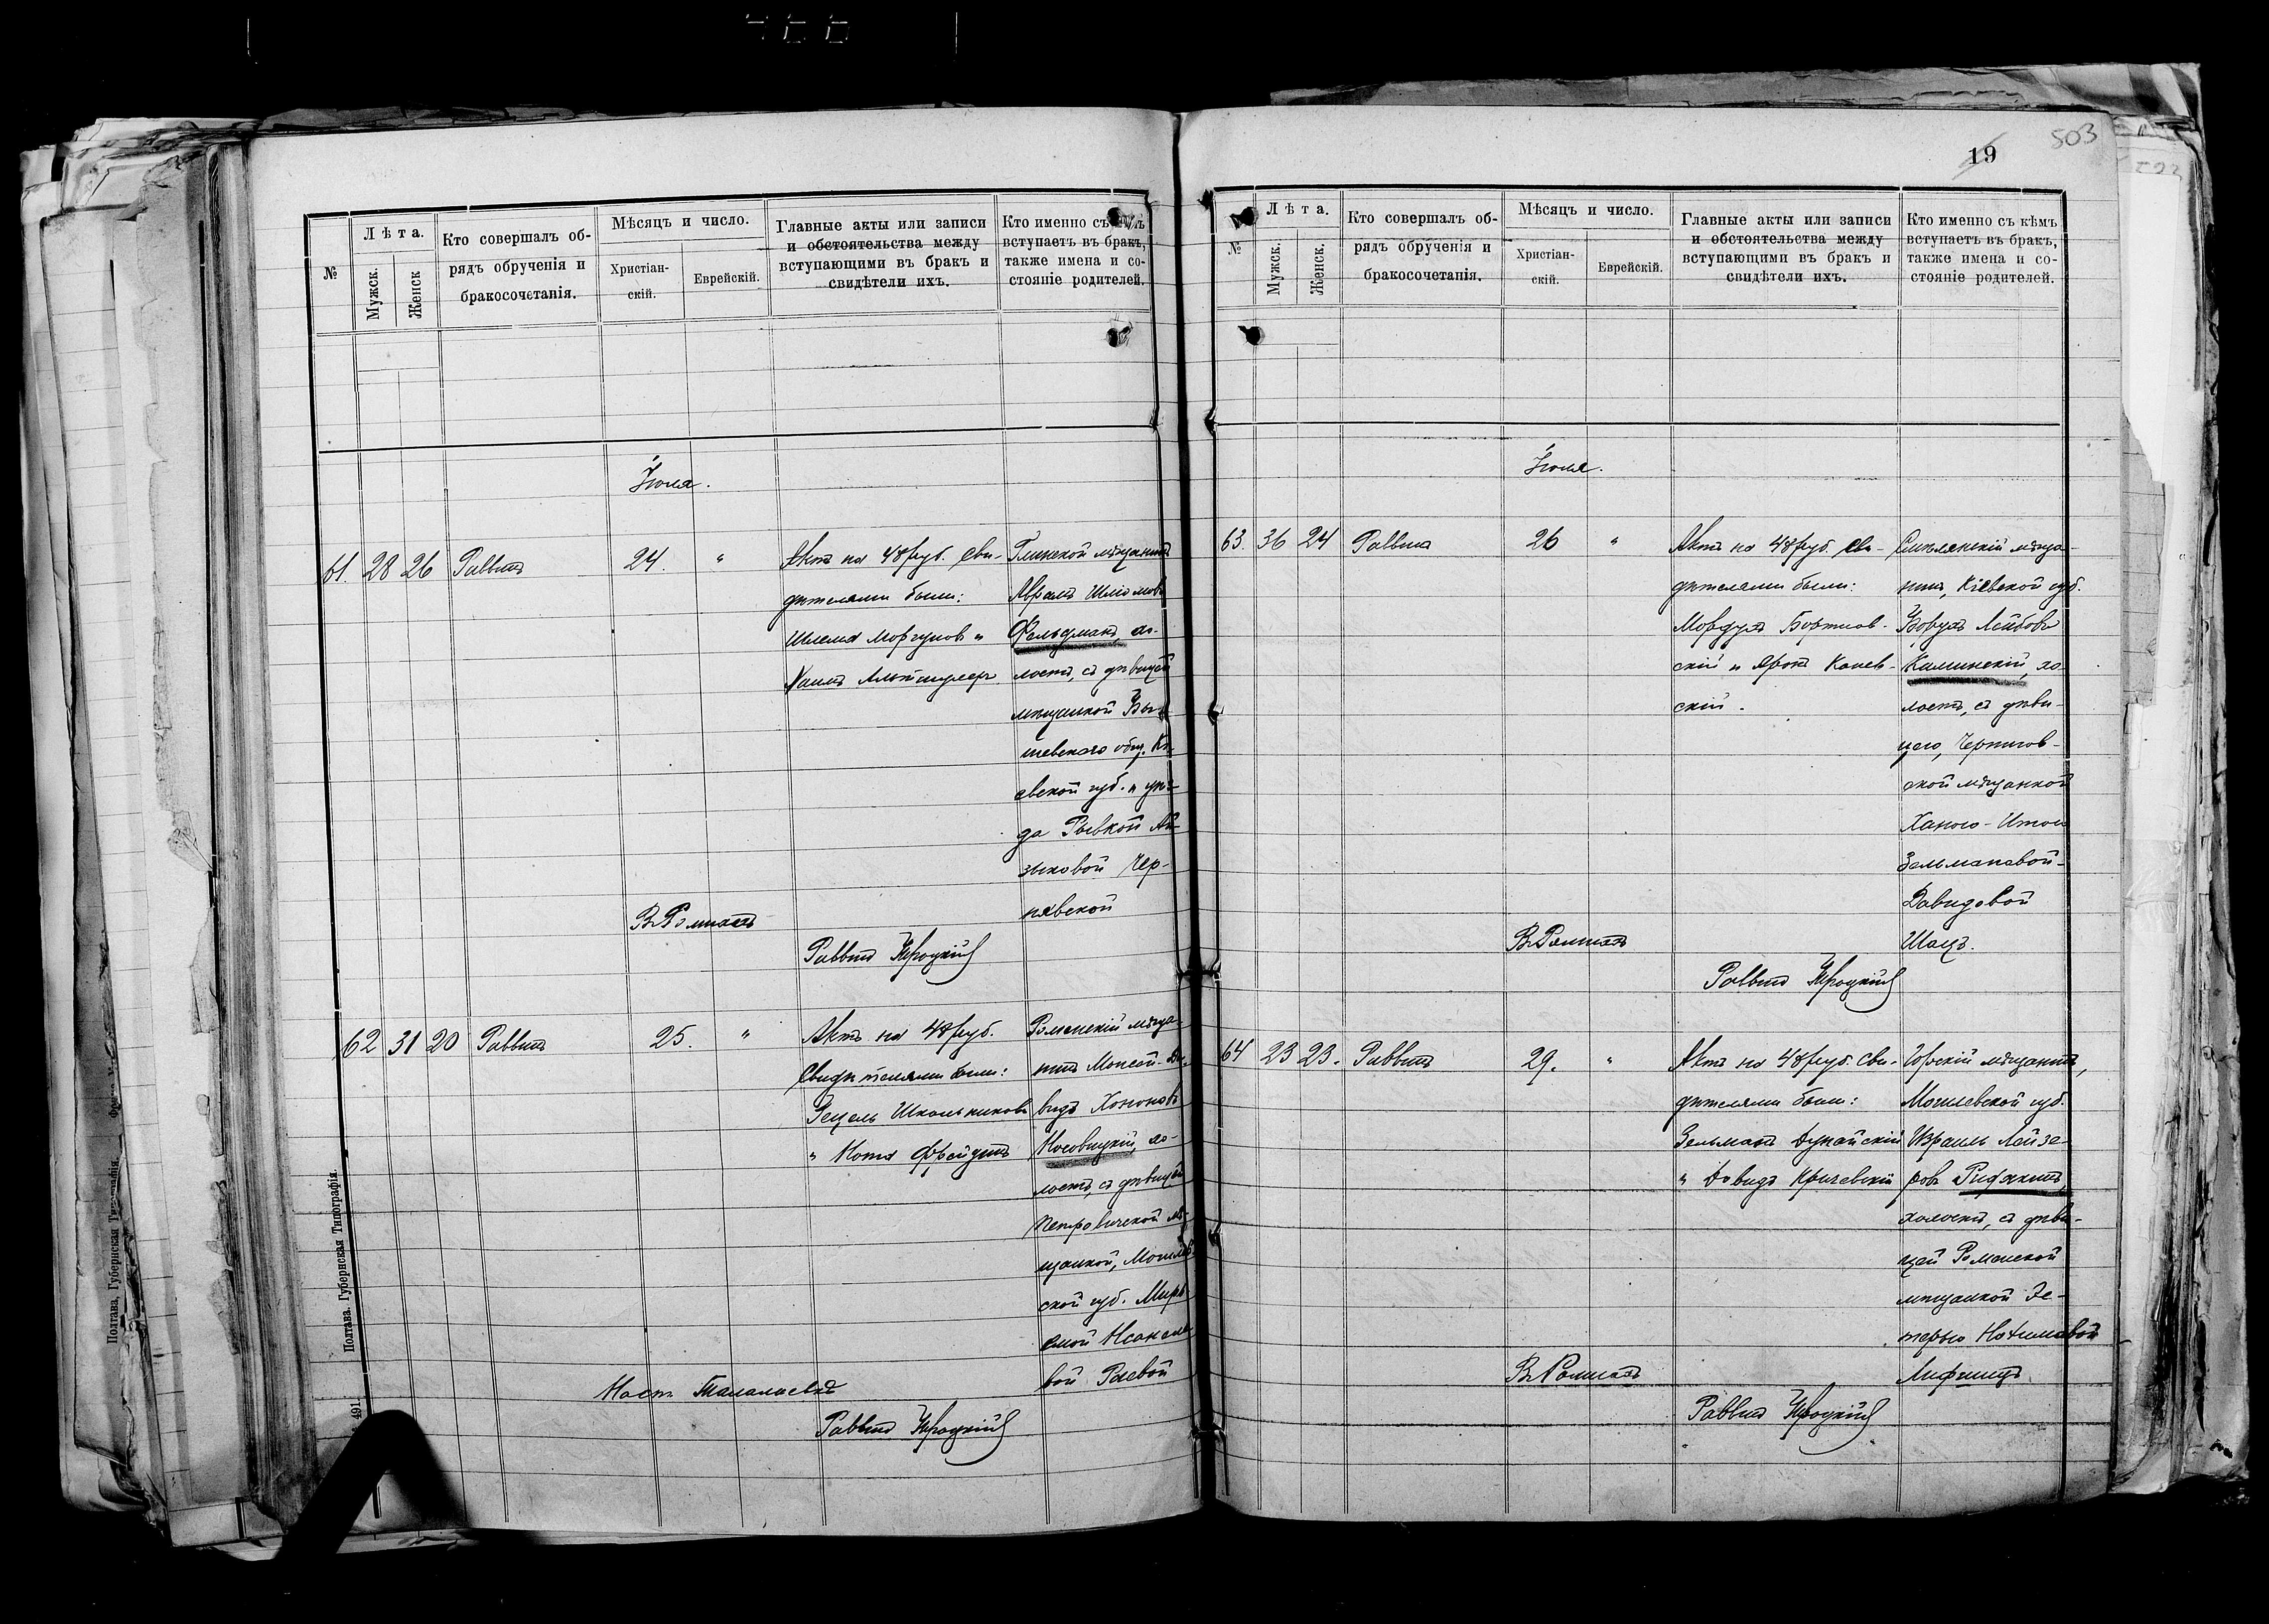 503
19
№
Лѣта.
Мужск.
Женск
Кто совершалъ об-
рядъ обрученія и
бракосочетанія.
Мѣсяцъ и число.
Христіан-
скій.
Еврейскій.
Главные акты или записи
и обстоятельства между
вступающими въ бракъ и
свидѣтели ихъ.
Кто именно съ
вступаетъ въ бракъ,
также имена и со-
стояніе родителей.
Іюля.
61. 28 26 Раввинъ 24. "
Актъ на 48 руб. Сви-
дѣтелями были:
Шлема Моргуновъ и
Хаимъ
Глинской мѣщанинъ
Абрамъ Шліомовъ
Фельдманъ, хо-
лостъ, съ дѣвицей
мѣщанкой
шевскаго общ. Кі-
евской губ. и уѣз-
да Рывкой Ай-
зиковой Чер-
нявской
В Ромнахъ
Раввинъ
62 31 20 Раввинъ 25. "
Актъ на 48 руб.
Свидѣтелями были:
Гецель Школьниковъ
и Нота Фрейдинъ
Роменскій мѣща-
нинъ Мовсей-До-
видъ Хононовъ
Носовицкій, хо-
лостъ, съ дѣвицей
Петровичской мѣ-
щанкой, Могилев-
ской губ. Мирь-
емой
вой Раевой
Раввинъ
Полтава. Губернская Типографія.
491.
Полтава, Губернская Типографія.
№
Лѣта.
Мужск.
Женск.
Кто совершалъ об-
рядъ обрученія и
бракосочетанія.
Мѣсяцъ и число.
Христіан-
скій.
Еврейскій.
Главные акты или записи
и обстоятельства между
вступающими въ бракъ и
свидѣтели ихъ.
Кто именно съ кѣмъ
вступаетъ въ бракъ,
также имена и со-
стояніе родителей.
Іюля.
63. 36 24 Раввинъ 26 "
Актъ на 48 руб. Сви-
дѣтелями были:
Мордухъ Бортнов-
скій и Аронъ Канев-
скій.
Смѣлянскій мѣща-
нинъ, Кіевской губ.
Борухъ Лейбовъ
Калинскій, хо-
лостъ, съ дѣви-
цею, Чернигов-
ской мѣщанкой
Ханою-Итою
Зельмановой-
Давидовой
Шацъ.
В Ромнахъ
Раввинъ
64 23 23. Раввинъ 29. "
Актъ на 48 руб. Сви-
дѣтелями были:
Зельманъ Дунайскій
и Довидъ Кричевскій
Горскій мѣщанинъ,
Могилевской губ.
Израиль Лейзе-
ровъ Рифкинъ,
холостъ, съ дѣви-
цей Роменской
мѣщанкой Эс-
терью
Лифшицъ
В Ромнахъ
Раввинъ